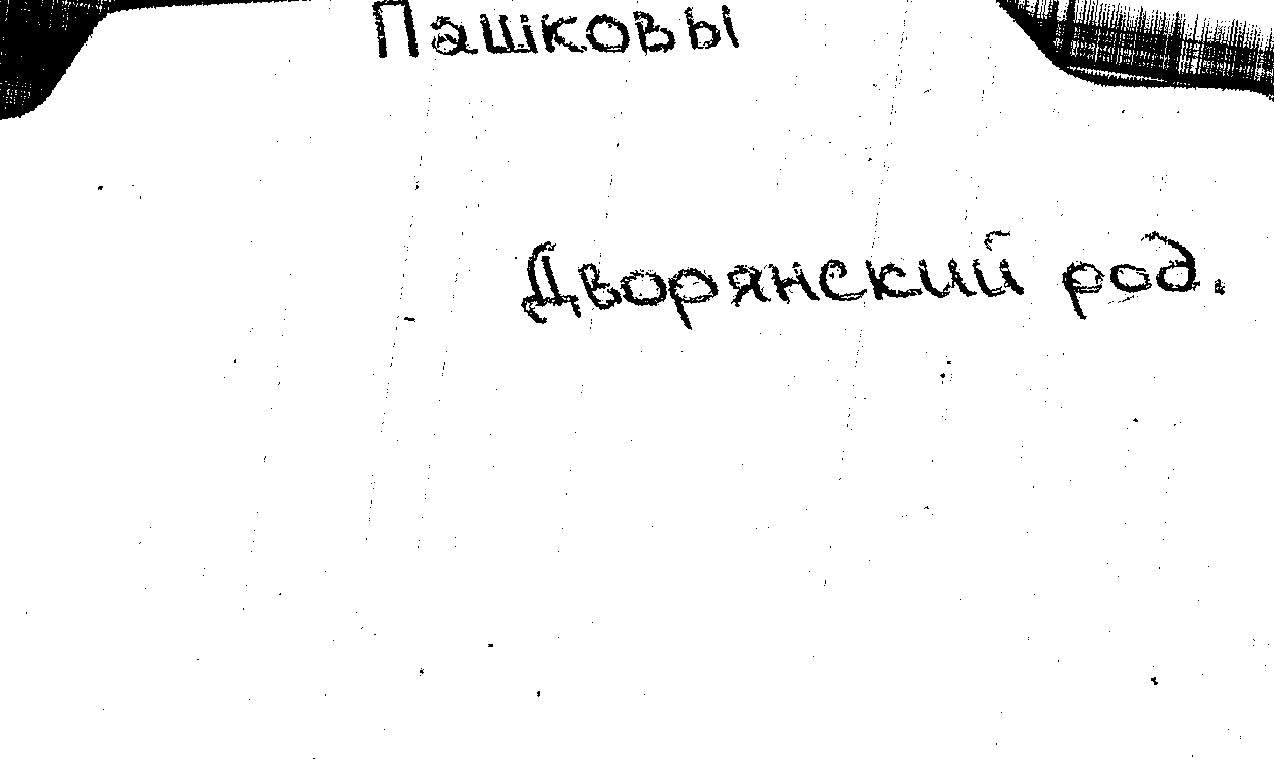 Пашковы
Дворянский род.